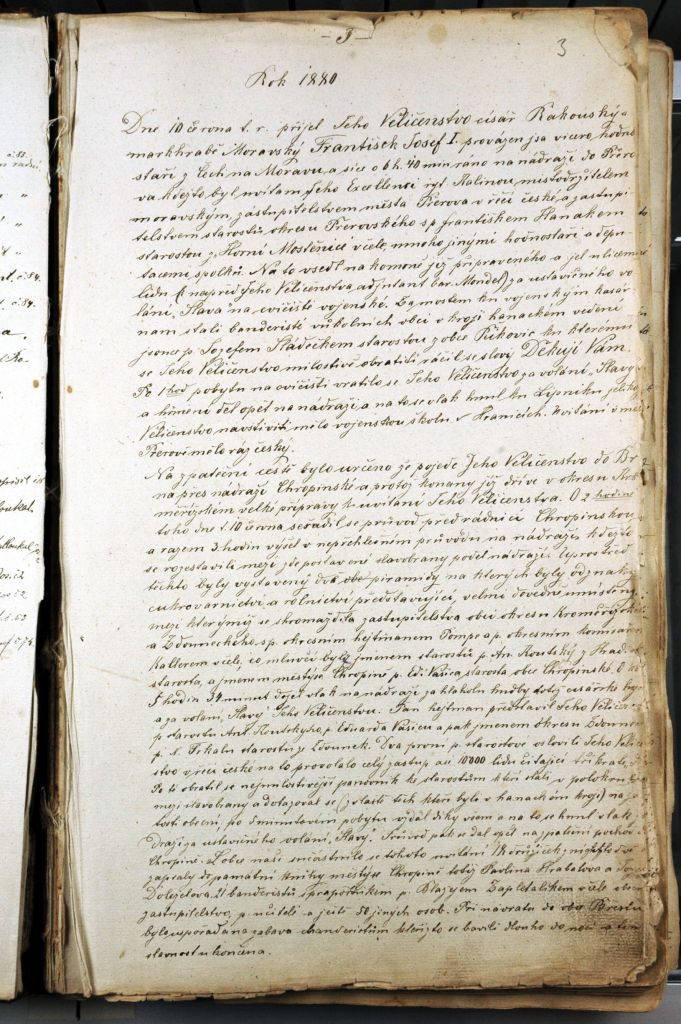 – 3 –
3
Rok 1880
Dne 10 června t. r. přijel Jeho Veličenstvo císař Rakouský a
markhrabě Moravský František Josef I. provázen jsa vícero hodno
staři z Čech na Moravu a sice o 6 h. 40 min ráno na nádraží do Přero
va kdejto byl uvítam Jeho Excellensí ryt. Kalinou místodržitelem
moravským, zástupitelstvem města Přerova v řeči české a zastupi
telstvem starostů okresu Přerovského s p. františkem Hanákem
starostou z Horní Moštěnice v čele, mnoho jinými hodnostaři a depu
tacemi spolků. Na to vsedl na komoně již připraveného a jel ulicemi
lidu (napřed Jeho Veličenstva adjutant bar. Mondel) za ustavičného vo
lání, Slava na cvičiště vojenské. Za mostem ku vojenským kasár
nam stáli banderisté vůkolních obcí v kroji hanáckém vedeni
jsouce p. Josefem Sládečkem starostou z obce Říkovic ku kterému
se Jeho Veličenstvo milostivě obrátiti ráčil se slovy Děkuji Vám.
Po 1 hod pobytu na cvičišti vrátilo se Jeho Veličenstvo za volání, Slavy
a hřmění děl opět na nádraží a na to se vlak hnul ku Lipníku jeliko
Veličenstvo navštíviti mělo vojenskou školu v Hranicích. Uvítání v městě
Přerově mělo ráz český.
Na zpáteční cestě bylo určeno že pojede Jeho Veličenstvo do Br
na přes nádraží Chropinské a protož konany již dříve v okresu Kro
měřížském velké přípravy k uvítání Jeho Veličenstva. O 2 hodině
toho dne t. 10 června seřadil se průvod před radnicí Chropinskou
a razem 3. hodin vyšel v nepřehledném průvodu na nádraží, kdejto
se rozestavili mezi zde postavené slavobrany podél nádraží. Uprostřed
těchto byly vystaveny dvě piramidy na kterých byly odznaky
cukrovarnictví a rolnictví představující, velmi dovedně umístěny
mezi kterými se shromáždila zastupitelstva obcí okresu Kroměřížského
a Zdouneckého, s p. okresním hejtmanem Pompe a p. okresním komisařem
Kallerem v čele, co mluvčí byli jmenem starostů p. An. Koutský z Hradiska
starosta, a jmenem městyse Chropině p. Ed. Vašica starosta obce Chropinské. O
5 hodin 34 minut dojel vlak na nádraží za hlaholu hudby totiž císařské hymny
a za volání, Slavy Jeho Veličenstvu. Pan hejtman představil Jeho Veličenstvu
p. starostu Ant. Koutského, p. Eduarda Vašicu a pak jmenem okresu Zdounec
p. starostu z Zdounek. Dva první p. starostové oslovili Jeho Veličen
stvo v řeči české na to provolalo celý zástup asi 10000 lidu čítající tři krate, Slava
Po té obrátil se nejmilostivější panovník ke starostům kteří stáli v polokruhu
mezi slavobrany a dotazoval se (z vlasti těch kteří byli v hanáckém kroji) na zá
ležitosti obecní, po 5 minutovém pobytu vzdal díky všem a na to se hnul vlak z
draží za ustavičného volání, "Slavy". Průvod pak se dal opět na zpáteční pochod
Chropině. Z obce naší súčastnilo se tohoto uvítání 18 družiček z nichž dvě
zapsaly do památní knihy městyse Chropině totiž Pavlina Hrabalova a
Dolejstova. 21 banderistů s praporníkem p. Blažejem Zapletalíkem v čele obecní
zastupitelstvo, p. učitelé a ještě 50 jiných osob. Při návratu do obce Břestu
byla uspořadana zabava banderistům kteřížto se bavili dlouho do noci a tím
slavnost ukončena.